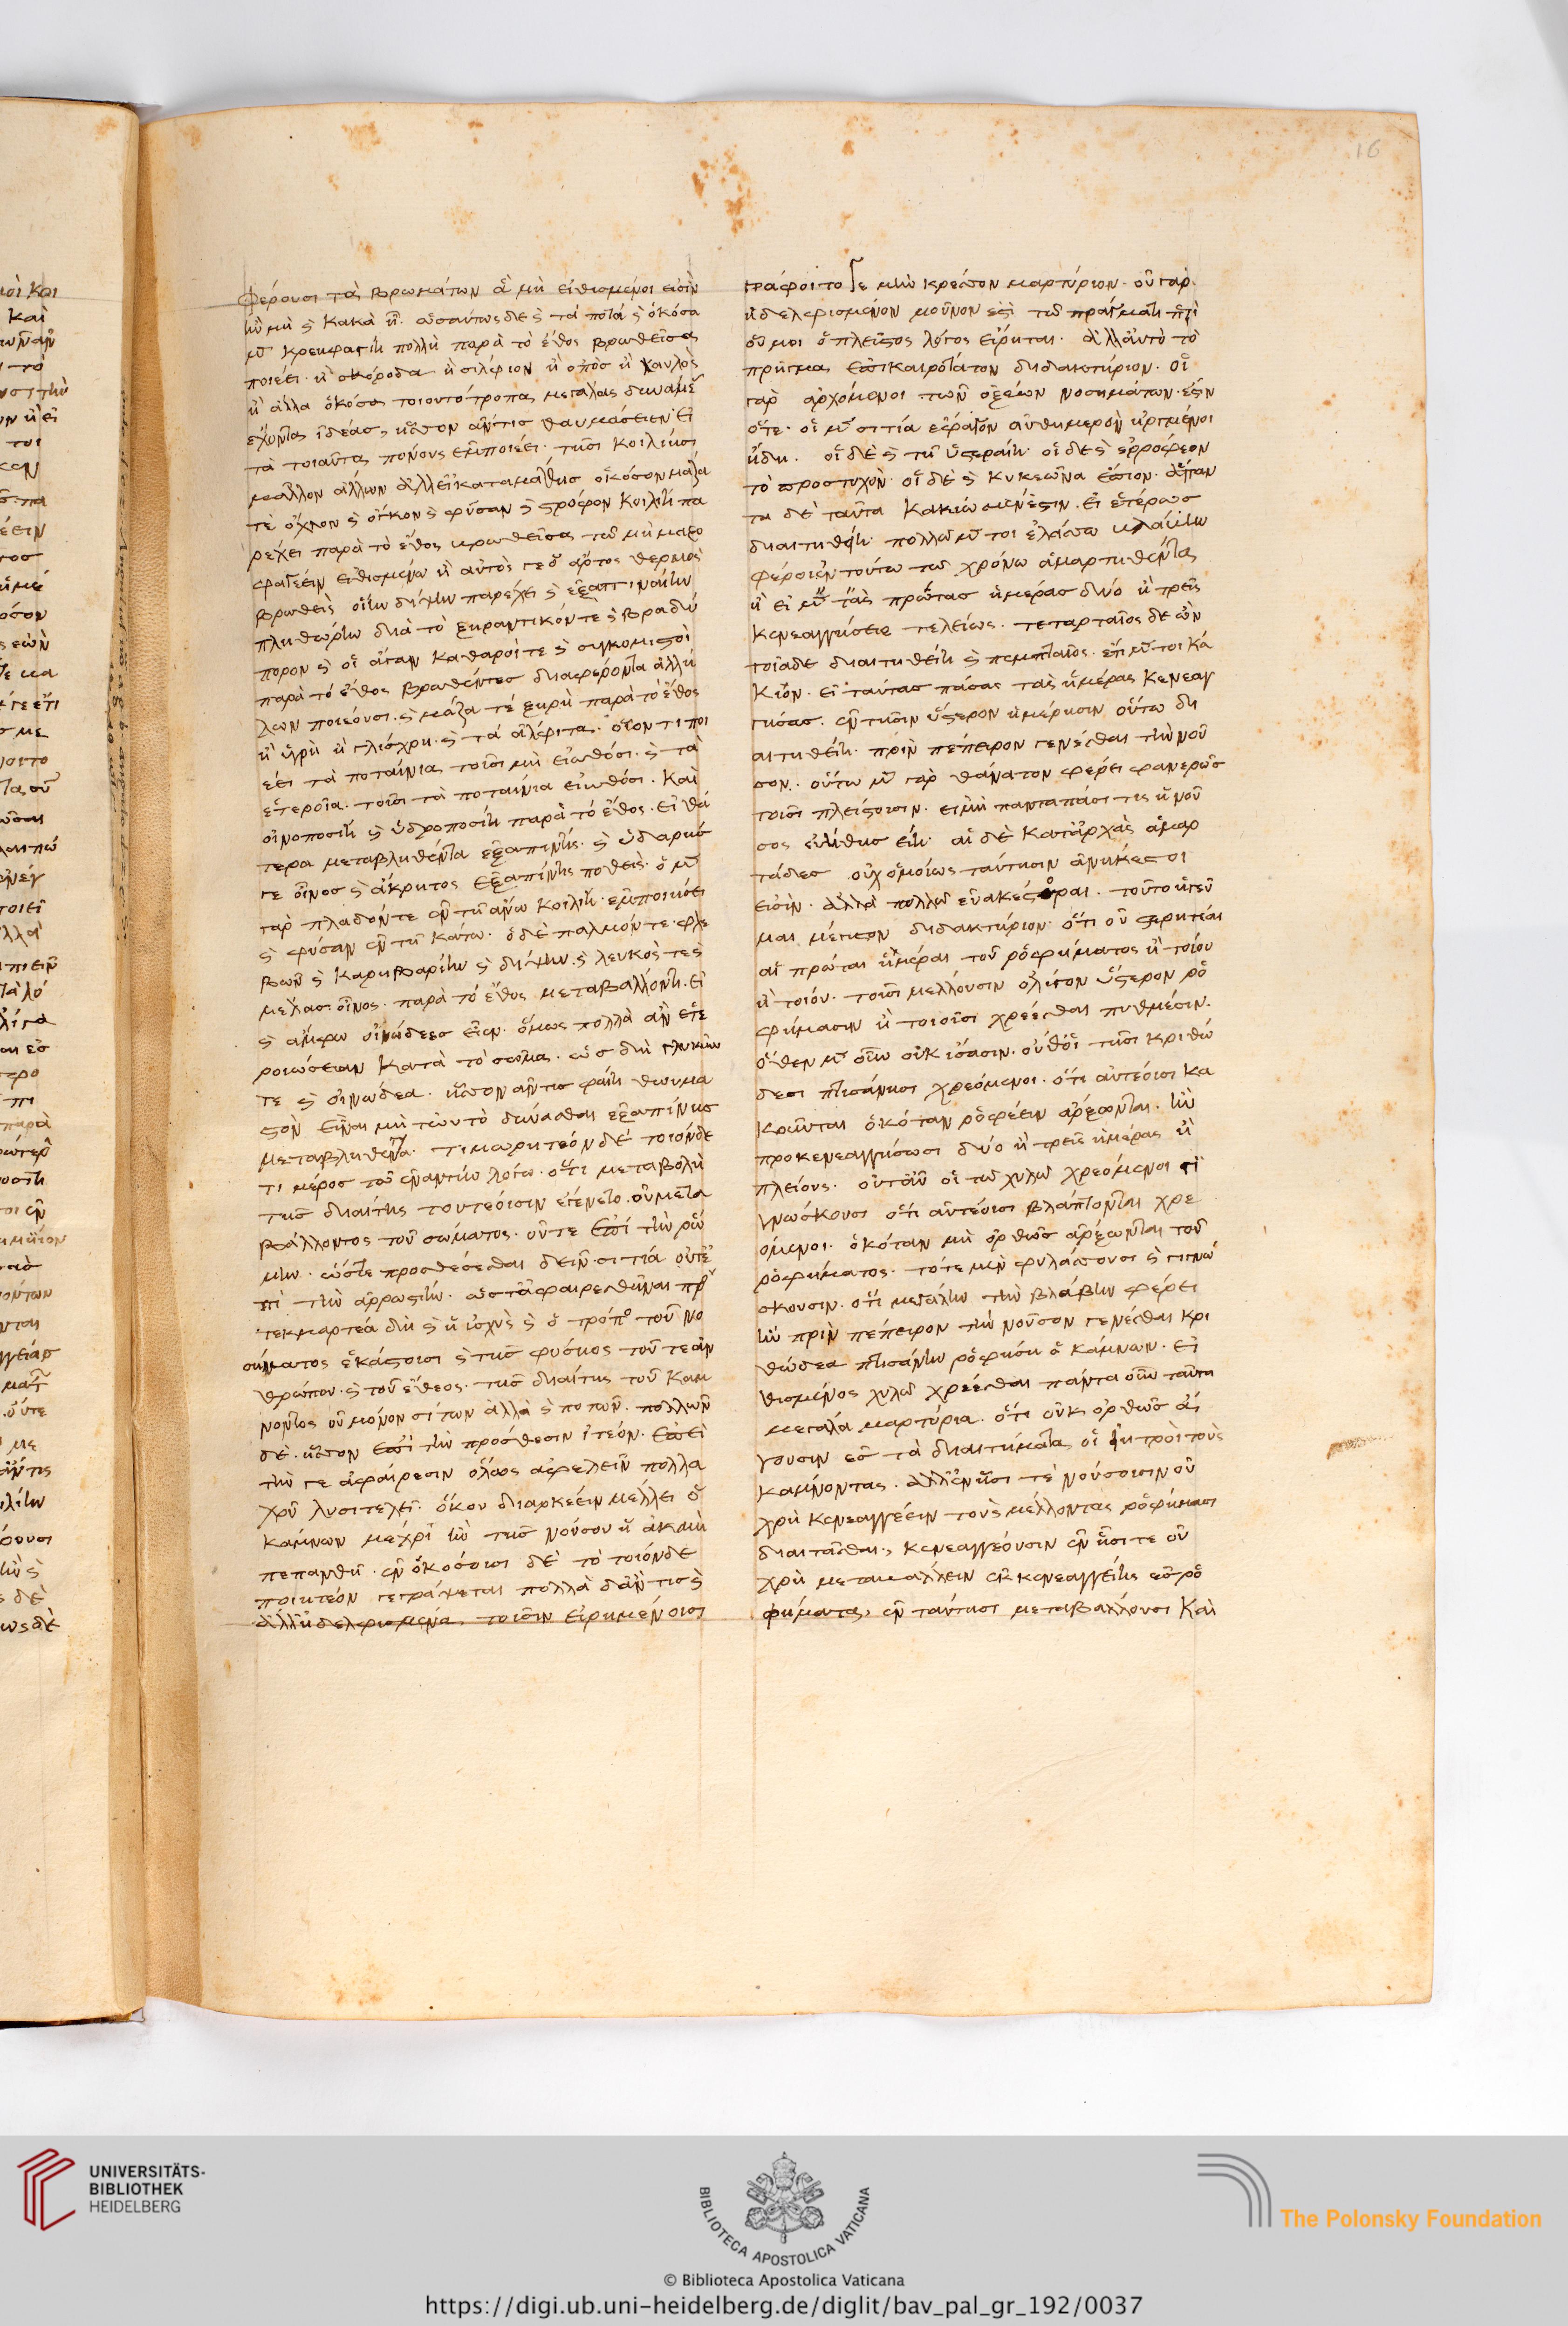 φέρουσι τὰ βρωμάτων ἃ μὴ εἰθισμένοι εἰσὶν
ἢν μὴ καὶ κακὰ ᾖ. ὡσαύτως δὲ καὶ τὰ ποτά καὶ ὁκόσα
μὲν κρεηφαγίη πολλὴ παρὰ τὸ ἔθος βρωθεῖσα
ποιέει. ἢ σκόροδα ἢ σίλφιον ἢ ὀπὸς ἢ καυλὸς
ἢ ἄλλα ὁκόσα τοιουτότροπα μεγάλας δυνάμεις
ἔχοντα ἰδέας, ἧσσον ἄν τις θαυμάσειεν εἰ
τὰ τοιαῦτα πόνους ἐμποιέει. τῇσι κοιλίῃσι
μᾶλλον ἄλλων ἀλλ' εἰ καταμάθῃς ὁκόσον μᾶζά
τε ὄχλον καὶ ὄγκον καὶ φύσαν καὶ στρόφον κοιλίῃ πα
ρέχει παρὰ τὸ ἔθος βρωθεῖσα τῷ μὴ μαζο
φαγέειν εἰθισμένω ἢ αὐτὸς γε ὁ ἄρτος θερμὸς
βρωθεὶς οἵην δίψην παρέχει καὶ ἐξαπιναίην
πληθώρην διὰ τὸ ξηραντικόν τε καὶ βραδύ
πορον καὶ οἱ ἄγαν καθαροί τε καὶ συγκομιστοὶ
παρὰ τὸ ἔθος βρωθέντες διαφέροντα ἀλλή
λων ποιέουσι. καὶ μᾶζα τέ ξηρὴ παρὰ τὸ ἔθος
ἢ ὑγρὴ ἢ γλίσχρη. καὶ τὰ ἄλφιτα. οἷον τι ποι
έει τὰ ποταίνια τοῖσι μὴ εἰωθόσι. καὶ τὰ
ἑτεροῖα. τοῖσι τὰ ποταίνια εἰωθόσι. Καὶ
οἰνοποσίη καὶ ὑδροποσίη παρὰ τὸ ἔθος. εἰ θά
τερα μεταβληθέντα ἐξαπίνης. καὶ ὑδαρής
τε οἶνος καὶ ἄκρητος ἐξαπίνης ποθείς. ὁ μὲν
γὰρ πλάδον τε ἐν τῇ ἄνω κοιλίῃ. ἐμποιήσει
καὶ φύσαν ἐν τῇ κάτω. ὁ δὲ παλμόν τε. φλε
βῶν καὶ καρηβαρίην καὶ δίψην. καὶ λευκὸς τε καὶ
μέλας οἶνος. παρὰ τὸ ἔθος μεταβάλλοντι. εἰ
καὶ ἄμφω οἰνώδεες εἶεν. ὅμως πολλὰ ἂν ἑτε
ροιώσειαν κατὰ τὸ σῶμα. ὡς δὴ γλυκύν
τε καὶ οἰνώδεα. ἧσσον ἄν τις φαίη θωυμα
στὸν εἶναι μὴ τωυτὸ δύνασθαι ἐξαπίνης
μεταβληθέντα. τιμωρητέον δὲ τοιόνδε
τι μέρος τῷ ἐναντίω λόγω. ὅτι μεταβολὴ
τῆς διαίτης τουτέοισιν ἐγένετο. οὐ μετα
βάλλοντος τοῦ σώματος. οὔτε ἐπὶ τὴν ῥώ
μην. ὥστε προσθέσθαι δεῖν σιτία οὔτ' ἐ
πὶ τὴν ἀρρωστίην. ὥστ' ἀφαιρεθῆναι προσ
τεκμαρτέα δὴ καὶ ἡ ἰσχὺς καὶ ὁ τρόπος τοῦ νο
σήματος ἑκάστοισι καὶ τῆς φύσιος τοῦ τε ἀν
θρώπου. καὶ τοῦ ἔθεος. τῆς διαίτης τοῦ κάμ
νοντος οὐ μόνον σίτων ἀλλὰ καὶ ποτῶν. πολλῶ
δὲ. ἧσσον ἐπὶ τὴν πρόσθεσιν ἰτέον. ἐπεὶ
τήν γε ἀφαίρεσιν ὅλως ἀφελεῖν πολλα
χοῦ λυσιτελεῖ. ὅκου διαρκέειν μέλλει ὁ
κάμνων μέχρι ἢν τῆς νούσου ἡ ἀκμὴ
πεπανθῇ. ἐν ὁκόσοισι δὲ τὸ τοιόνδε
ποιητέον γεγράψεται πολλὰ δ' ἄν τις καὶ
ἄλλ' ἠδελφισμένα. τοῖσιν εἰρημένοισι
γράφοι τόδε μὴν κρέσσον μαρτύριον. οὐ γὰρ.
ἠδελφισμένον μοῦνον ἐστὶ τῷ πράγματι περὶ
οὗ μοι ὁ πλεῖστος λόγος εἴρηται. ἀλλ' αὐτὸ τὸ
πρῆγμα ἐπικαιρότατον διδακτήριον. οἱ
γὰρ ἀρχόμενοι τῶν ὀξέων νοσημάτων. ἔστιν
ὅτε. οἱ μὲν σιτία ἔφαγον αὐθημερὸν ἠργμένοι
ἤδη. οἱ δὲ καὶ τῇ ὑστεραίῃ. οἱ δὲ καὶ ἐρρόφεον
τὸ προστυχὸν. οἱ δὲ καὶ κυκεῶνα ἔπιον. ἅπαν
τα δὲ ταῦτα κακίω μὲν ἐστιν. εἰ ἑτέρως
διαιτηθείη. πολλῶ μέν τοι ἐλάσσω βλάβην
φέρει ἐν τούτω τῶ χρόνω ἁμαρτηθέντα
ἢ εἰ μὲν τὰς πρώτας ἡμέρας δύο ἢ τρεῖς
κενεαγγήσειε τελείως. τεταρταῖος δε ὢν
τοιάδε διαιτηθείη καὶ πεμπταῖος. ἔτι μέν τοι κά
κιον. εἰ ταύτας πάσας τὰς ἡμέρας κενεαγ
γήσας. ἐν τῇσιν ὕστερον ἡμέρῃσιν οὕτω δι
αιτηθείη. πρὶν πέπειρον γενέσθαι τὴν νοῦ
σον. οὕτω μὲν γὰρ θάνατον φέρει φανερῶς
τοῖσι πλείστοισιν. εἰ μὴ πανταπάσι τις ἡ νοῦ
σος εὐήθης εἴη. αἱ δὲ κατ' ἀρχὰς ἁμαρ
τάδες οὐχ ὁμοίως ταύτῃσιν ἀνήκεστοι
εἰσὶν. ἀλλὰ πολλῶ εὐακεστότεραι. τοῦτο ἡγεῦ
μαι μέγιστον διδακτήριον. ὅτι οὐ στερητέαι
αἱ πρῶται ἡμέραι τοῦ ῥοφήματος ἢ τοίου
ἢ τοίου. τοῖσι μέλλουσιν ὀλίγον ὕστερον ῥο
φήμασιν ἢ τοιοῖσι χρέεσθαι πυθμέσιν.
ὅθεν μὲν οὖν οὐκ ἴσασιν. οὔθ' οἱ τῇσι κριθώ
δεσι πτισάνῃσι χρεόμενοι. ὅτι αὐτέοισι κα
κοῦνται ὁκόταν ῥοφέειν ἄρξωνται. ἢν
προκενεαγγήσωσι δύο ἢ τρεῖς ἡμέρας ἢ
πλείους. οὔτ' αὖ οἱ τῶ χυλῶ χρεόμενοι γι
νώσκουσι ὅτι αὐτέοισι βλάπτονται χρε
όμενοι. ὁκόταν μὴ ὀρθῶς ἄρξωνται τοῦ
ῥοφήματος. τότε μὴν φυλάσσουσι καὶ γινώ
σκουσιν. ὅτι μεγάλην τὴν βλάβην φέρει
ἢν πρὶν πέπειρον τὴν νοῦσον γενέσθαι κρι
θώδεα πτισάνην ῥοφήσῃ ὁ κάμνων. εἰ
θισμένος χυλῶ χρέεσθαι πάντα οὖν ταῦτα
μεγάλα μαρτύρια. ὅτι οὐκ ὀρθῶς ἄ
γουσιν ἐς τὰ διαιτήματα οἱ ἰητροὶ τοὺς
κάμνοντας. ἀλλ' ἐν ᾗσί τε νούσοισιν οὐ
χρὴ κενεαγγέειν τοὺς μέλλοντας ῥοφήμασι
διαιτᾶσθαι, κενεαγγέουσιν ἐν ᾗσί τε οὐ
χρὴ μεταβάλλειν ἐκ κενεαγγείης ἐς ῥο
φήματα, ἐν ταύτῃσι μεταβάλλουσι Καὶ
16
UNIVERSITÄTS-
BIBLIOTHEK
HEIDELBERG
BIBLIOTECA APOSTOLICA VATICANA
The Polonsky Foundation
© Biblioteca Apostolica Vaticana
https://digi.ub.uni-heidelberg.de/diglit/bav_pal_gr_192/0037